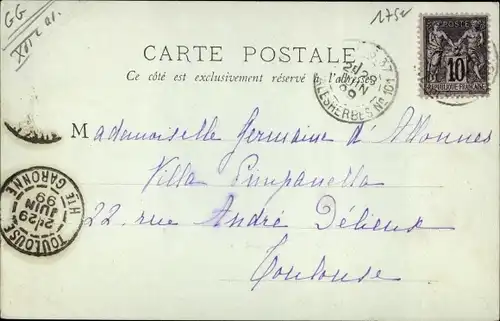 GG
175e
POSTE
10
RÉPUBLIQUE FRANÇAISE
CARTE POSTALE
Ce côté est exclusivement réservé à l'adresse
MALESHERBES No 101
JUIN
99
Mademoiselle Germaine d'Adonnes
Villa Pimpanella
22, rue André Délieux
Toulouse
TOULOUSE
21 29
JUIN
99
HTE GARONNE